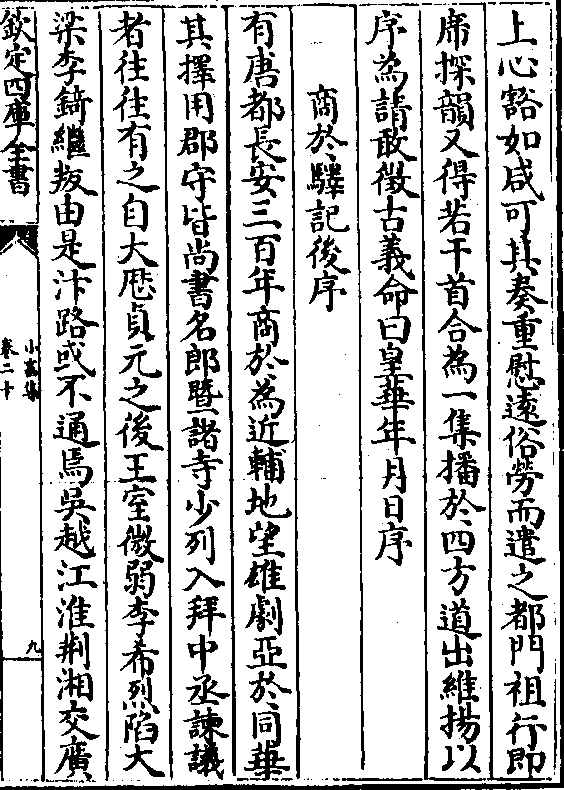 上心豁如咸可其奏重慰逺俗勞而遣之都門祖行即
席探韻又得若干首合為一集播於四方道出維揚以
序為請敢徴古義命曰皇華年月日序
商於驛記後序
有唐都長安三百年商於為近輔地望雄劇亞於同華
其擇用郡守皆尚書名郎暨諸寺少列入拜中丞諫議
者往往有之自大厯貞元之後王室微弱李希烈陷大
梁李錡繼叛由是汴路或不通焉吳越江淮荆湘交廣
欽定四庫全書
小畜集
卷二十
九